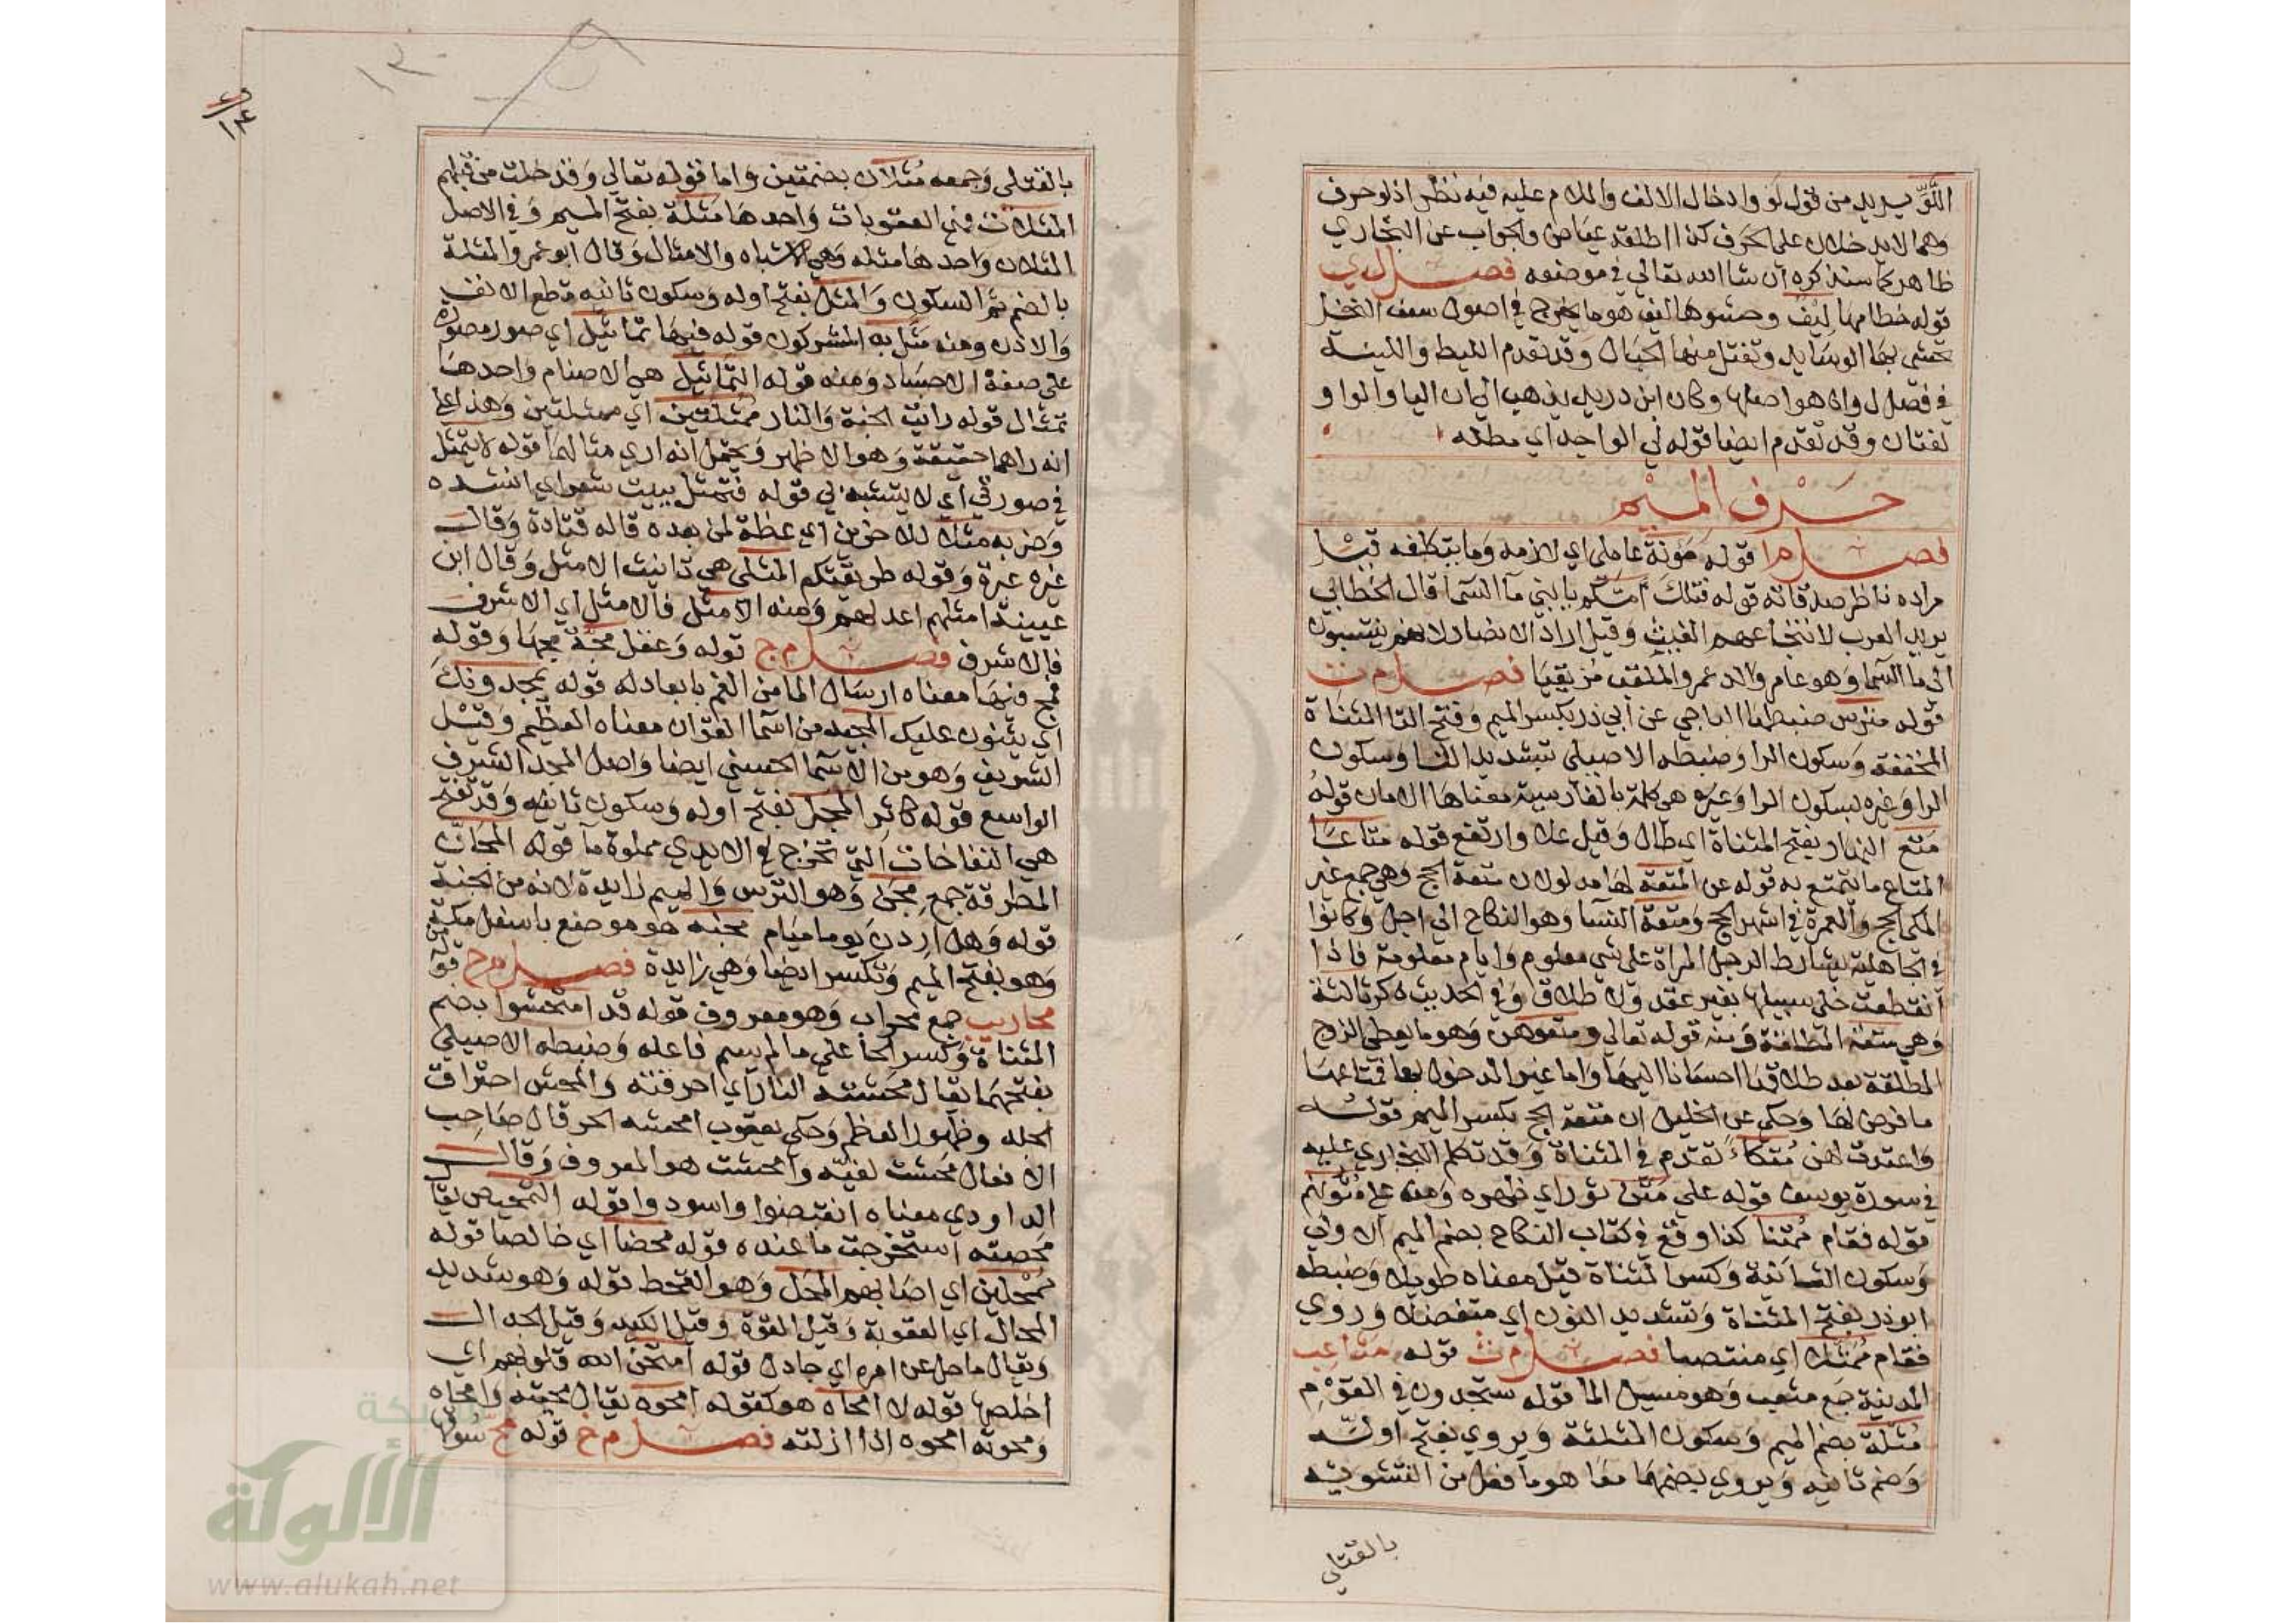 اللَّوِّ يريد من قول لو وادخال الالف واللام عليه فيه نظر اذ لو حرف
وهما لا يدخلان على الحرف كذا اطلقه عياض والجواب عن البخاري
ظاهر كما سنذكره ان شا الله تعالى في موضعه فصل ل ي
قوله خطامها ليف وحشوها ليف هو ما يخرج في اصول سعف النخل
يحشى بها الوسايد وتفتل منها الحبال وقد تقدم الليط واللينة
في فصل ل و لانه هو اصلها وكان ابن دريد يذهب الى ان اليا والواو
لغتان وقد تقدم ايضا قوله لي الواجد اي مطله
حرف الميم
فصل م ا قوله مؤنة عاملي اي لازمه وما يتكلفه قيل
مراده ناظر صدقاته قوله فتلك امكم يا بني ما السما قال الخطابي
يريد العرب لانتجاعهم الغيث وقيل اراد الانصار لانهم ينتسبون
الى ما السما وهو عامر والد عمرو الملقب مزيقيا فصل م ت
قوله مترس ضبطها الباجي عن ابي ذر بكسر الميم وفتح التا المثناة
المخففة وسكون الرا وضبطه الاصيلي بتشديد التا وسكون
الرا وغيره بسكون الرا وعـ هي كلمة بالفارسية معناها الامان قوله
متع النهار بفتح المثناة اي طال وقيل علا وارتفع قوله متاعا
المتاع ما يتمتع به قوله عن المتعة لها مدلولان متعة الحج وهي جمع غير
المكي الحج والعمرة في اشهر الحج ومتعة النسا وهو النكاح الى اجل وكانوا
في الجاهلية يشارط الرجل المراة على شي معلوم وايام معلومة فاذا
انقطعت خلى سبيلها بغير عقد ولا طلاق وفي الحديث ذكر ثالثة
وهي متعة المطلقة ومنه قوله تعالى ومتعوهن وهو ما يعطي الزوج
المطلقة بعد طلاقها احسانا اليها واما غير المدخول بها فمتاعها
ما فرض لها وحكى عن الخليل ان متعة الحج بكسر الميم قوله
واعتدت لهن متكاً تقدم في المثناة وقد تكلم البخاري عليه
في سورة يوسف قوله على متن ثور اي ظهره ومنه على متونهم
قوله فقام ممتنا كذا وقع في كتاب النكاح بضم الميم الاولى
وسكون الثانية وكسر المثناة قيل معناه طويلا وضبطه
ابو ذر بفتح المثناة وتشديد النون اي متفضلا وروي
فقام ممثلا اي منتصبا فصل م ث قوله مثاعب
المدينة جمع مثعب وهو مسيل الما قوله ستجدون في القوم
مثلة بضم الميم وسكون المثلثة ويروي بفتح اوله
وضم ثانيه ويروي بضمهما معا هو ما فعل من التشويه
بالقتلى
بالقتلى وجمعه مثلات بضمتين واما قوله تعالى وقد خلت من قبلهم
المثلات فهي العقوبات واحدها مثلة بفتح الميم وفي الاصل
المثلات واحدها مثله وهي الاشباه والامثال وقال ابو عمرو المثلة
بالضم ثم السكون والمثل بفتح اوله وسكون ثانيه قطع الانف
والاذن ومنه مثل به المشركون قوله فيها تماثيل اي صور مصورة
على صفة الاجساد ومنه قوله التماثيل هي الاصنام واحدها
تمثال قوله رايت الجنة والنار ممثلتين اي ممثلتين وهذا على
انه راهما حقيقة وهو الاظهر ويحتمل انه اري مثالهما قوله لا يتمثل
في صورتي اي لا يتشبه بي قوله فتمثل ببيت شعر اي انشده
وضربه مثلا للاخرين اي عظة لمن بعده قاله قتادة وقال
غيره عبرة وقوله طريقتكم المثلى هي تانيث الامثل وقال ابن
عيينة امثلهم اعدلهم ومنه الامثل فالامثل اي الاشرف
فالاشرف فصل م ج قوله وعقل مجة مجها وقوله
فمج فيها معناه ارسال الما من الفم بابعاد له قوله يمجدونك
اي يثنون عليك المجيد من اسما القران معناه العظيم وقيل
الشريف وهو من الاسما الحسنى ايضا واصل المجد الشرف
الواسع قوله كاثر المجل بفتح اوله وسكون ثانيه وقد تفتح
هي النفاخات التي تخرج في الايدي مملوة ما قوله المجان
المطرقة جمع مجن وهو الترس والميم زايدة لانه من الجنة
قوله وهل اردن يوما مياه مجنه هو موضع باسفل مكة
وهو بفتح الميم وتكسر ايضا وهي زايدة فصل م ح قوله
محاريب جمع محراب وهو معروف قوله قد امتحشوا بضم
المثناة وكسر الحا على ما لم يسم فاعله وضبطه الاصيلي
بفتحهما يقال محشته النار اي احرقته والمحش احتراق
الجلد وظهور العظم وحكى يعقوب امحشه الحر قال صاحب
الافعال محشت لغيه وامحشت هو المعروف وقال
الداودي معناه انقبضوا واسودوا قوله التمحيص يقال
محصته استخرجت ما عنده قوله محضا اي خالصا قوله
ممحلين اي اصابهم المحل وهو القحط قوله وهو شديد
المحال اي العقوبة وقيل القوة وقيل الكيد وقيل الجدال
ويقال ماحل عن امره اي جادل قوله امتحن الله قلوبهم اي
اخلصها قوله لا امحاه هو كقوله امحوه يقال محيته وامحاه
ومحوته امحوه اذا ازلته فصل م خ قوله مخ سوقها
شبكة
الألوكة
www.alukah.net